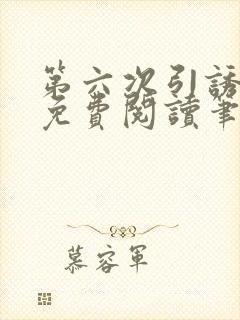 第六次引誘
免費閱讀筆
慕容軍